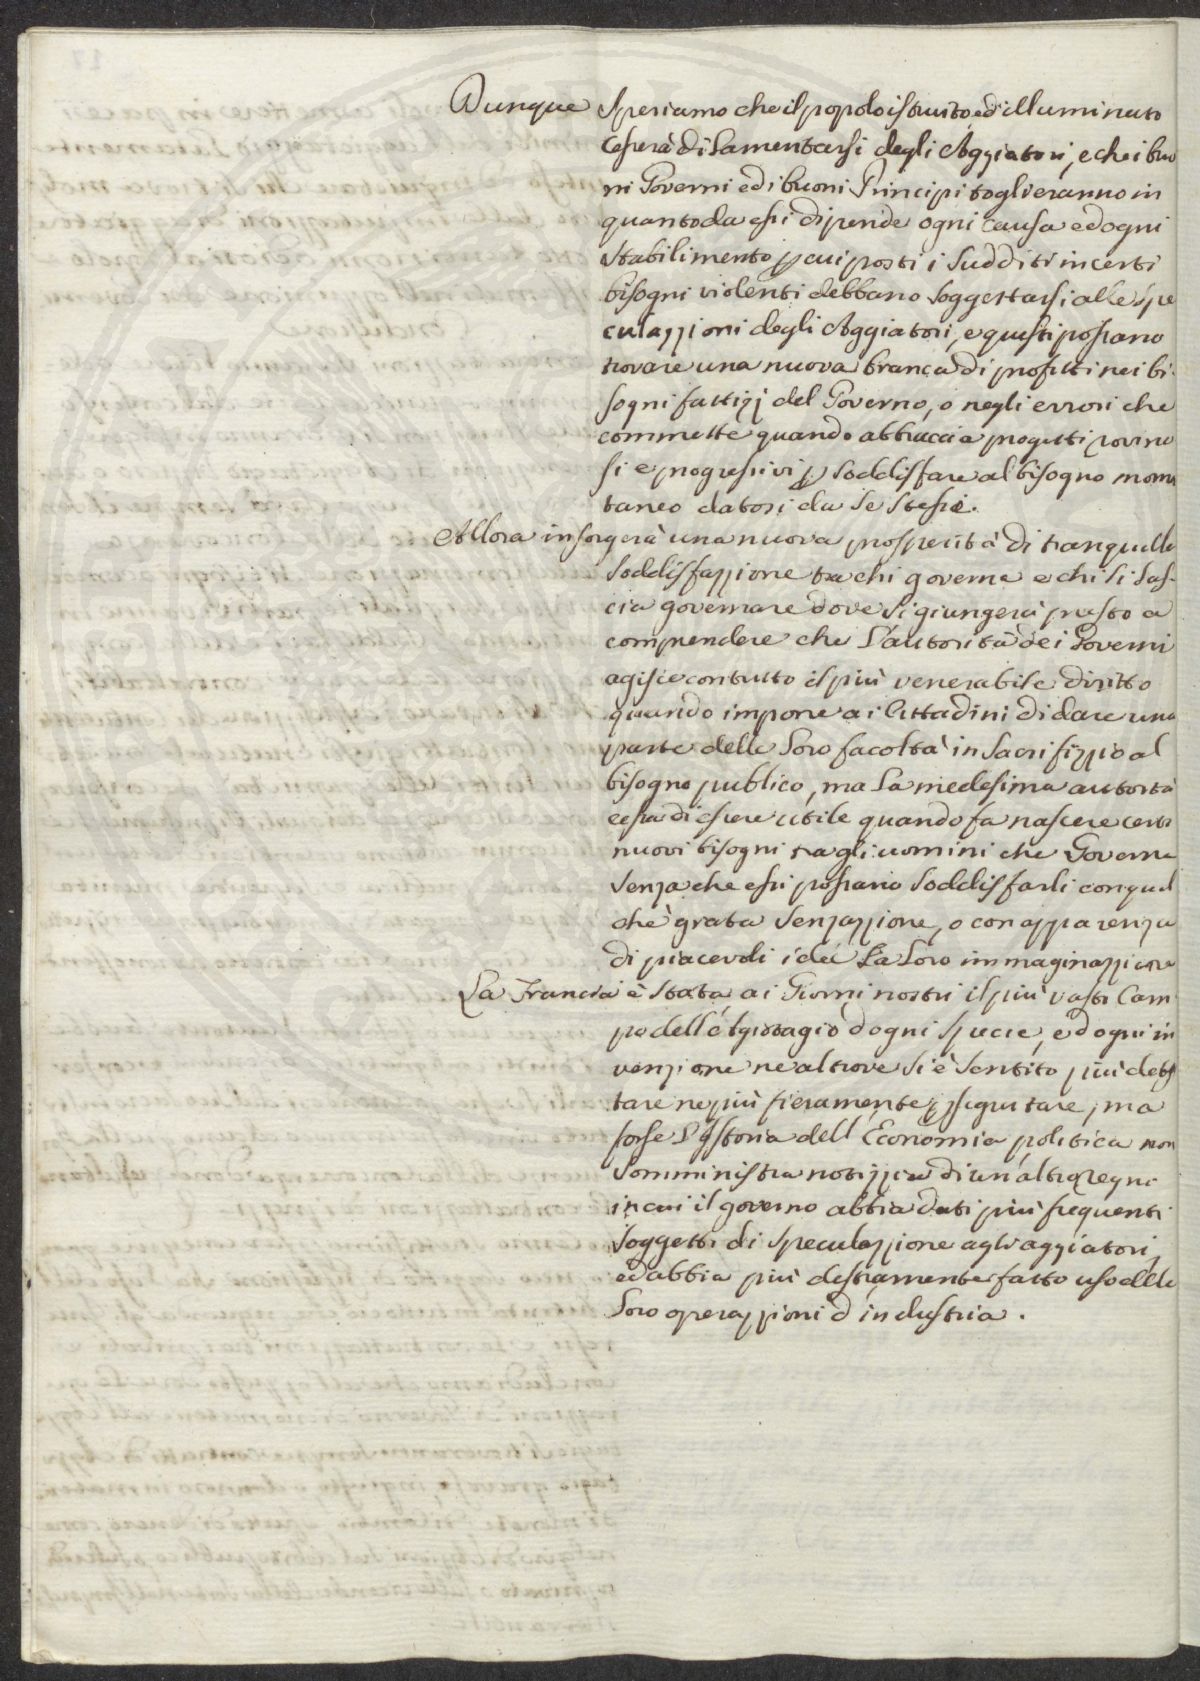 Dunque Speriamo che il popolo istruito ed illuminato
cesserà di Lamentarsi degli Aggiatori, e che i buo
ni Governi ed i buoni Principi toglieranno in
quanto da essi dipende ogni causa ed ogni
Stabilimento p cui posti i Sudditi in certi
bisogni violenti debbano Soggettarsi alle Spe
culazzioni degli Aggiatori, e questi possano
trovare una nuova branca di profitti nei bi-
sogni fattizj del Governo, o negli errori che
commette quando abbraccia progetti rovino
si e progressivi p Soddisfare al bisogno momen
taneo datosi da Se Stessi.
Allora insorgerà una nuova prosperità di tranquilla
Soddisfazzione tra chi governa e chi Si Las-
cia governare dove Si giungerà presto a
comprendere che L'autorità dei Governi
agisce con tutto il più venerabile diritto
quando impone ai Cittadini di dare una
parte delle Loro facoltà in Sacrifizzio al
bisogno publico, ma La medesima autorità
cessa di essere utile quando fà nascere certi
nuovi bisogni tra gli uomini che Governa
Senza che essi possano Soddisfarli con qual
che grata Senzazzione, o con apparenza
di piacevoli idee La Loro immaginazzione
La Francia è Stata ai Giorni nostri il più vasto Cam
po dell'Agiotagio d'ogni Specie, e d'ogni in
venzione ne altrove Si è Sentito più detes
tare ne più fieramente pseguitare, ma
forse L'Istoria dell'Economia politica non
Somministra notizzia di un altro regno
in cui il governo abbia dati più frequenti
Soggetti di Speculazzione agli aggiatori,
ed abbia più destramente fatto uso delle
Loro operazzioni d'industria.